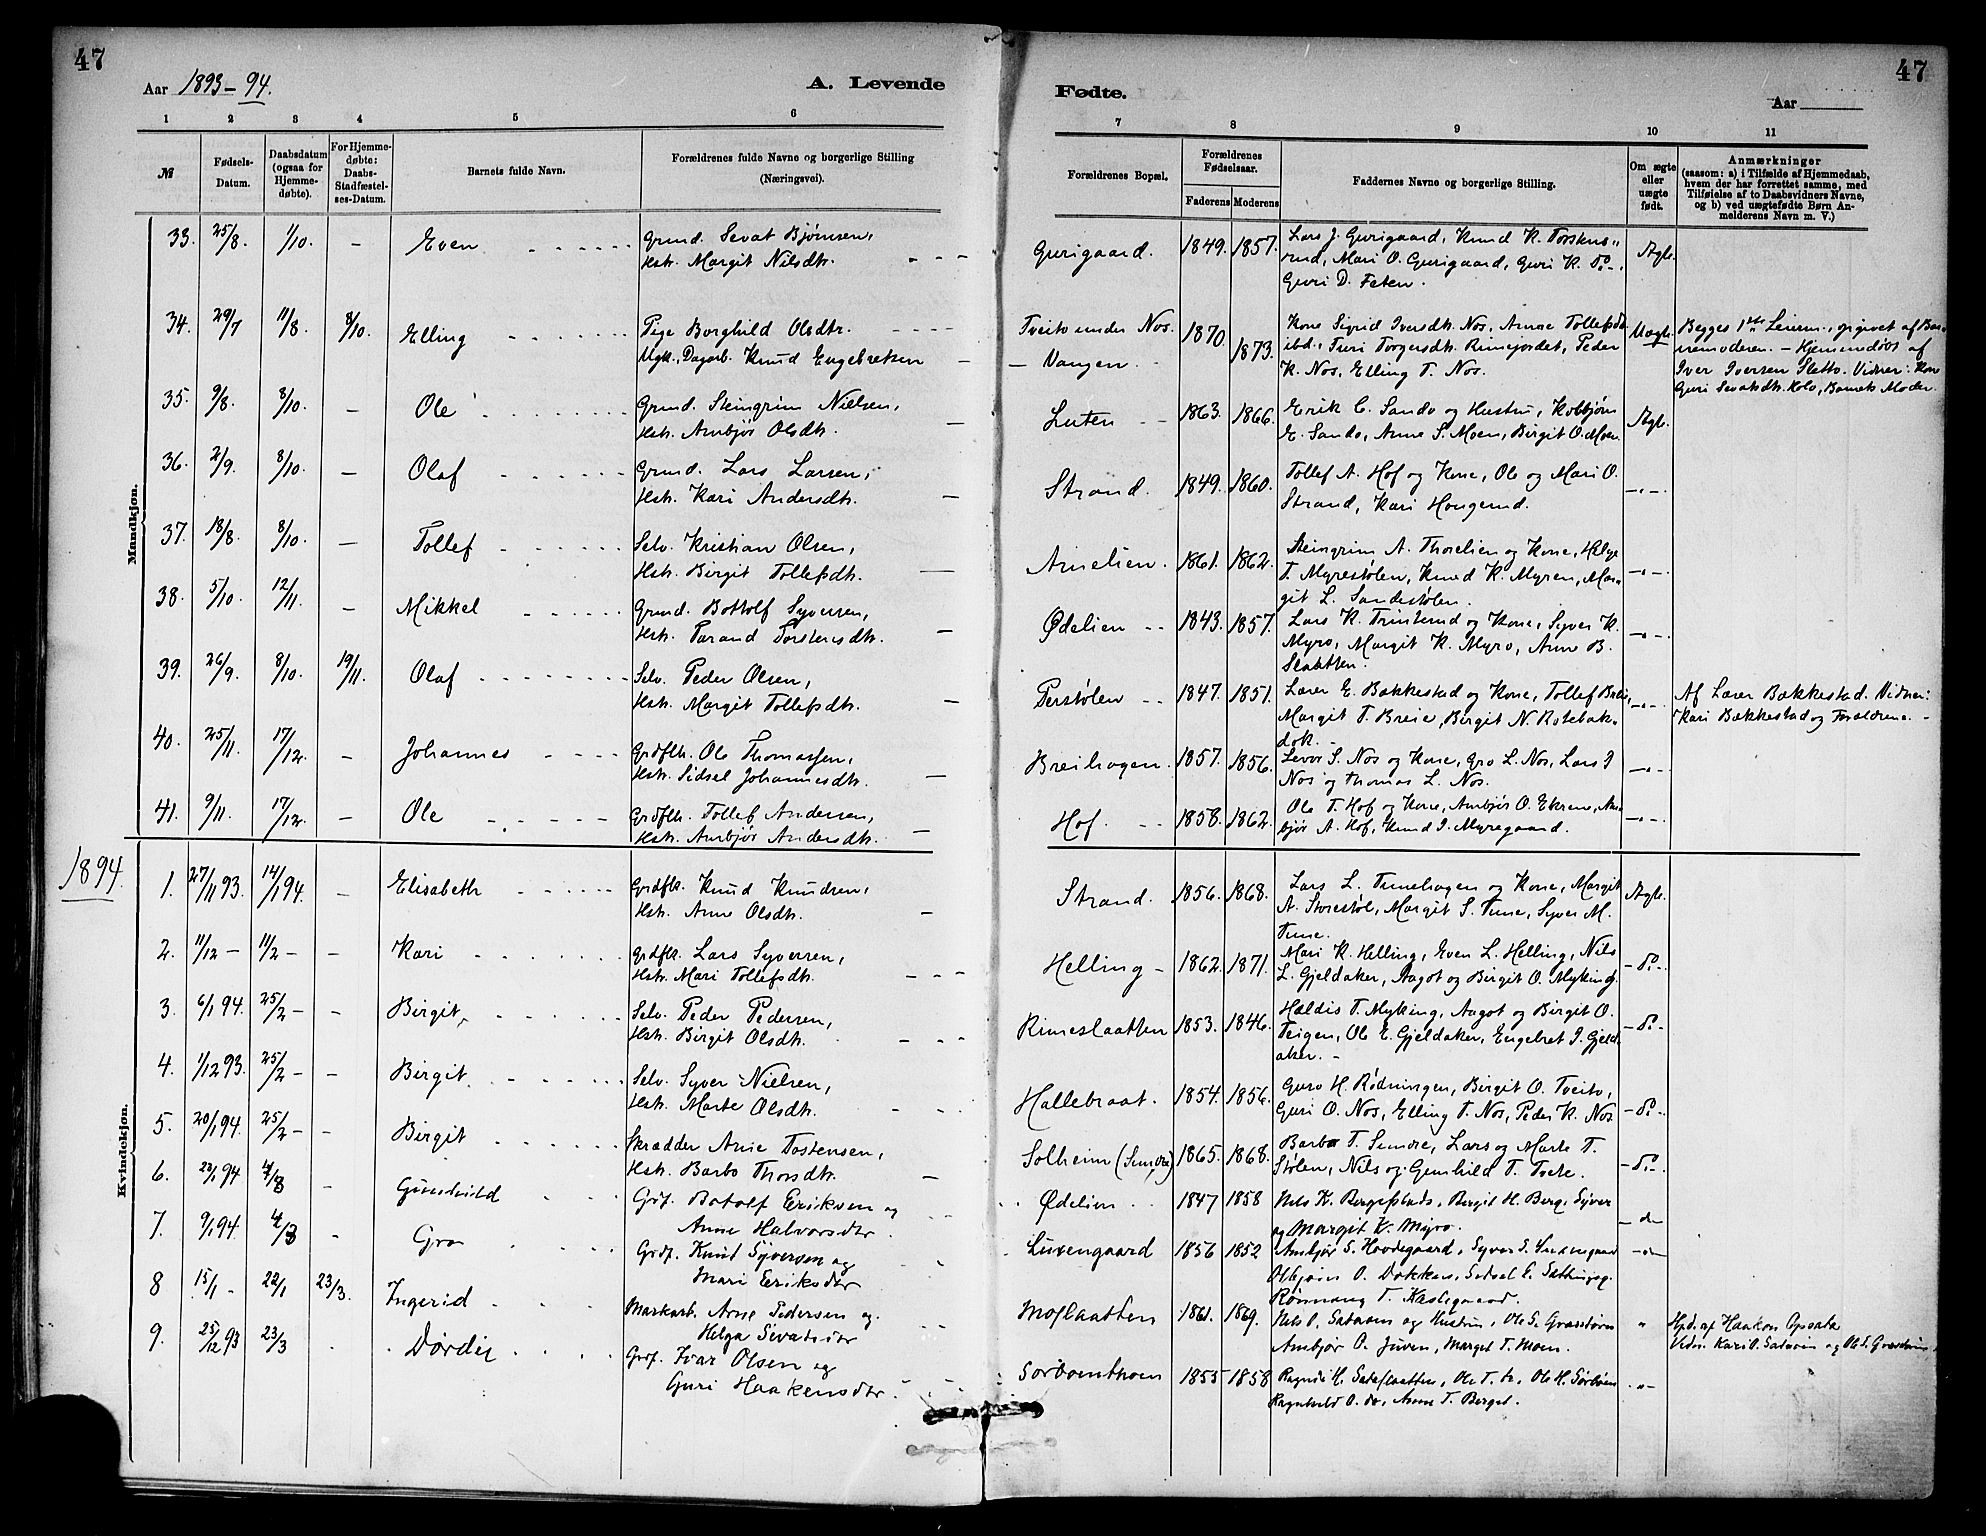 47
Aar 1893-94.
A. Levende
1 2 3 4 5 6
№
Fødsels-
Datum.
Daabsdatum
(ogsaa for
Hjemme-
døbte).
For Hjemme-
døbte:
Daabs-
Stadfæstel-
ses-Datum.
Barnets fulde Navn.
Forældrenes fulde Navne og borgerlige Stilling
(Næringsvei).
Mandkjøn.
33. 25/8. 1/10. – Even Grmd. Sevat Bjørnsen,
Hstr. Margit Nilsdtr.
34. 29/7 11/8. 8/10. Elling Pige Borghild Olsdtr.
Ugk., Dagarb. Knud Engebretsen
35. 9/8. 8/10. – Ole Grmd. Steingrim Nielsen,
Hstr. Ambjør Olsdtr.
36. 2/9. 8/10. – Olaf Grmd. Lars Larsen,
Hstr. Kari Andersdtr.
37. 18/8. 8/10. – Tollef Selv. Kristian Olsen,
Hstr. Birgit Tollefsdtr.
38. 5/10. 12/11. – Mikkel Grmd. Bottolf Syversen,
Hstr. Parand Torstensdtr.
39. 26/9. 8/10. 19/11. Olaf Selv. Peder Olsen,
Hstr. Margit Tollefsdtr.
40. 25/11. 17/12. – Johannes Grdflk. Ole Thomassen,
Hstr. Sidsel Johannesdtr.
41. 9/11. 17/12. – Ole Grdflk. Tollef Andersen,
Hstr. Ambjør Andersdtr.
1894.
Kvindekjøn.
1. 27/11 93. 14/1 94. – Elisabeth Grdflk. Knud Knudsen,
Hstr. Anne Olsdtr.
2. 11/12 – 11/2 – – Kari Grdflk. Lars Syversen,
Hstr. Mari Tollefsdtr.
3. 6/1 94. 25/2 – Birgit Selv. Peder Pedersen,
Hstr. Birgit Olsdtr.
4. 1/12 93. 25/2 – – Birgit Selv. Syver Nielsen,
Hstr. Marte Olsdtr.
5. 20/1 94. 25/2 – – Birgit Skrædder Arne Tostensen,
Hstr. Barbo Thorsdtr.
6. 94 – Gunhild Grdf. Botolf Eriksen og
Anne Halvorsdtr
7. 9/1 94. 4/3 – Gro Grdf. Knut Syversen og
Mari Eriksdtr
8 15/1 – 22/1 23/3. Ingerid Markarb. Arne Pedersen og
Helga Sivatsdtr
9. 25/12 93 23/3 Dørdei Grdf. Ivar Olsen og
Guri Haakensdtr
47
Fødte.
Aar
7 8 9 10 11
Forældrenes Bopæl.
Forældrenes
Fødselsaar.
Faderens Moderens
Faddernes Navne og borgerlige Stilling.
Om ægte
eller
uægte
født.
Anmærkninger
(saasom: a) i Tilfælde af Hjemmedaab,
hvem der har forrettet samme, med
Tilføielse af to Daabsvidners Navne,
og b) ved uægtefødte Børn An-
melderens Navn m. V.)
Gurigaard. 1849. 1857. Lars J. Gurigaard, Knud K. Torskns-
rud, Mari O. Gurigaard, Guri K. do.
Guri D. Feten. Ægte.
Tveito under Nos. 1870 Kone Sigrid Iversdtr. Nos, Anne Tollefsdtr. Uægte. Begges 1ste Leierm., opgivet af Bar-
– Vangen. 1873. ibd., Turi Torgersdtr. Rimejordet, Peder nemoderen. – Hjemmedøbt af
K. Nos, Elling T. Nos. Iver Iversen Sletto. Vidner: Kone
Guri Sevatsdtr. Kolo, Barnets Moder.
Luten 1863. 1866. Erik C. Sando og Hustru, Kolbjørn
E. Sando, Anne S. Moen, Birgit O. Moen. Ægte.
Strand. 1849. 1860. Tollef A. Hof og Kone, Ole og Mari O.
Strand, Kari Hougerud. –"–
Arnelien. 1861. 1862. Steingrim A. Thorelien og Kone, Helge
T. Myrestølen, Knud K. Myren, Mar-
git L. Sandestølen. –"–
Ødelien 1843. 1857. Lars K. Trinterud og Kone, Syver K.
Myro, Margit K. Myro, Anne B.
Slaatten. –"–
Perstølen 1847. 1851. Lærer E. Bakkestad og Kone, Tollef Breie, Af Lærer Bakkestad. Vidner:
Margit T. Breie, Birgit N. Rotebak- –"– Kari Bakkestad og Forældrene.
dok.
Breihagen. 1857. 1856. Levor S. Nos og Kone, Gro L. Nos, Lars I
Nos og Thomas L. Nos. –"–
Hof. 1858. 1862. Ole T. Hof og Kone, Ambjør O. Ekrene, Am-
bjør A. Hof, Knud I. Myregaard. –"–
Strand. 1856. 1868. Lars L. Tunehagen og Kone, Margit
A. Storestøl, Margit S. Tune, Syver M.
Tune. Ægte.
Helling 1862. 1871. Mari K. Helling, Even L. Helling, Nils
L. Gjeldaker, Aagot og Birgit O. Myking. – do –
Rimeslaatten 1853. 1846. Hældis T. Myking, Aagot og Birgit O.
Teigen, Ole E. Gjeldaker, Engebret I. Gjeld-
aker. – – do –
Hallebraat. 1854. 1856. Guro H. Rødningen, Birgit O. Tveito,
Guri O. Nos, Elling T. Nos, Peder K. Nos – do –
Solheim (Sundre) 1865. 1868. Barbo T. Sundre, Lars og Marte T.
Stølen, Nils og Gunhild T. Tufte. – do –
Ødelien 1847 1858 Nels K. Bergaplads, Bergit H. Berg, Syver
og Margit K. Myro. – do
1856 1852 Ambjør S. Hovdegaard, Syver S.
O. Dokken, Sidsel E.
Rønnaug T. Haslegaard. – do –
Moslaatten 1861. 1869. Nels O. Sataøien og Hustru, Ole S. Græsteøien " Hjd. af Haakon Opsata
Ambjør O. Juven, Marget T. Moen. Vidn. Kari O. Sataøien og Ole S. Græsteøien.
1855 1858 Ragndi H. Sataslaatten, Ole T. do, Ole H. Sørbøen –"–
Ragnhild O. do, Anne T. Berget.